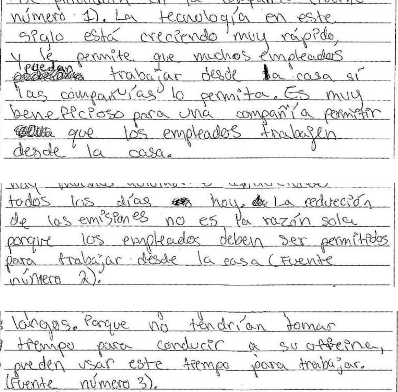 número 1). La tecnología en este
siglo está creciendo muy rápido,
y le permite que muchos empleados
puedan trabajar desde la casa sí
las compañías lo permita. Es muy
beneficioso para una compañía permitir
que los empleados trabajen
desde la casa.
todos los días hoy. La reducción
de las emisiones no es la razón sola
porque los empleados deben ser permitidos
para trabajar desde la casa (Fuente
número 2).
largos. Porque no tendrían tomar
tiempo para conducir a su officina,
pueden usar este tiempo para trabajar.
(Fuente número 3).